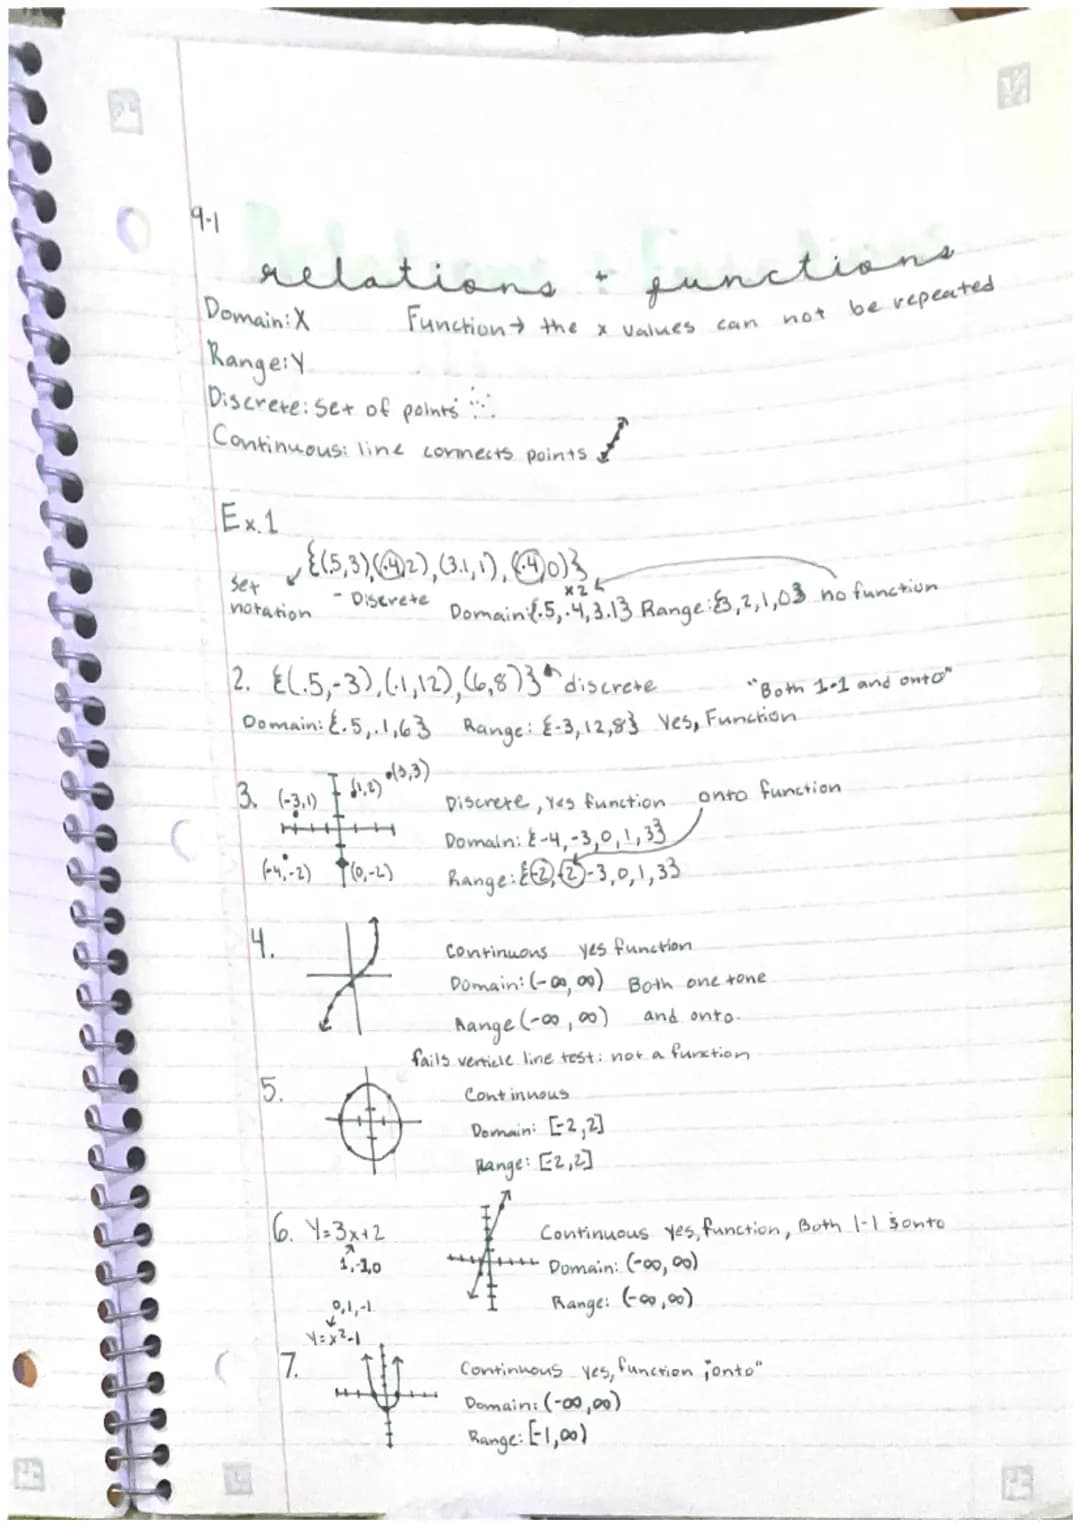 9-1
relations + functions
Domain: X Function → the x values can not be repeated
Range: Y
Discrete: Set of points
Continuous: line connects points
Ex. 1
{(.5,3)(.4,2),(3.1,1),(.4,0)}
x2
Set notation - Discrete Domain:{.5,.4,3.1} Range:{3,2,1,0} no function
2. {(.5,-3),(.1,12),(6,8)} discrete "Both 1-1 and onto"
Domain: {.5,.1,6} Range: {-3,12,8} Yes, Function
3. (-3,1) (1,2) (3,3)
Discrete, Yes function onto function
Domain: {-4,-3,0,1,3}
(-4,-2) (0,-2) Range: {-2,-2,-3,0,1,3}
4. Continuous yes function
Domain: (-∞,∞) Both one tone
Range (-∞,∞) and onto.
fails verticle line test: not a function
5. Continuous
Domain: [-2,2]
Range: [-2,2]
6. Y=3x+2 Continuous yes, function, Both 1-1 & onto
1,-1,0 Domain: (-∞,∞)
Range: (-∞,∞)
0,1,-1
Y=x²-1
7. Continuous yes, function "onto"
Domain: (-∞,∞)
Range: [-1,∞)